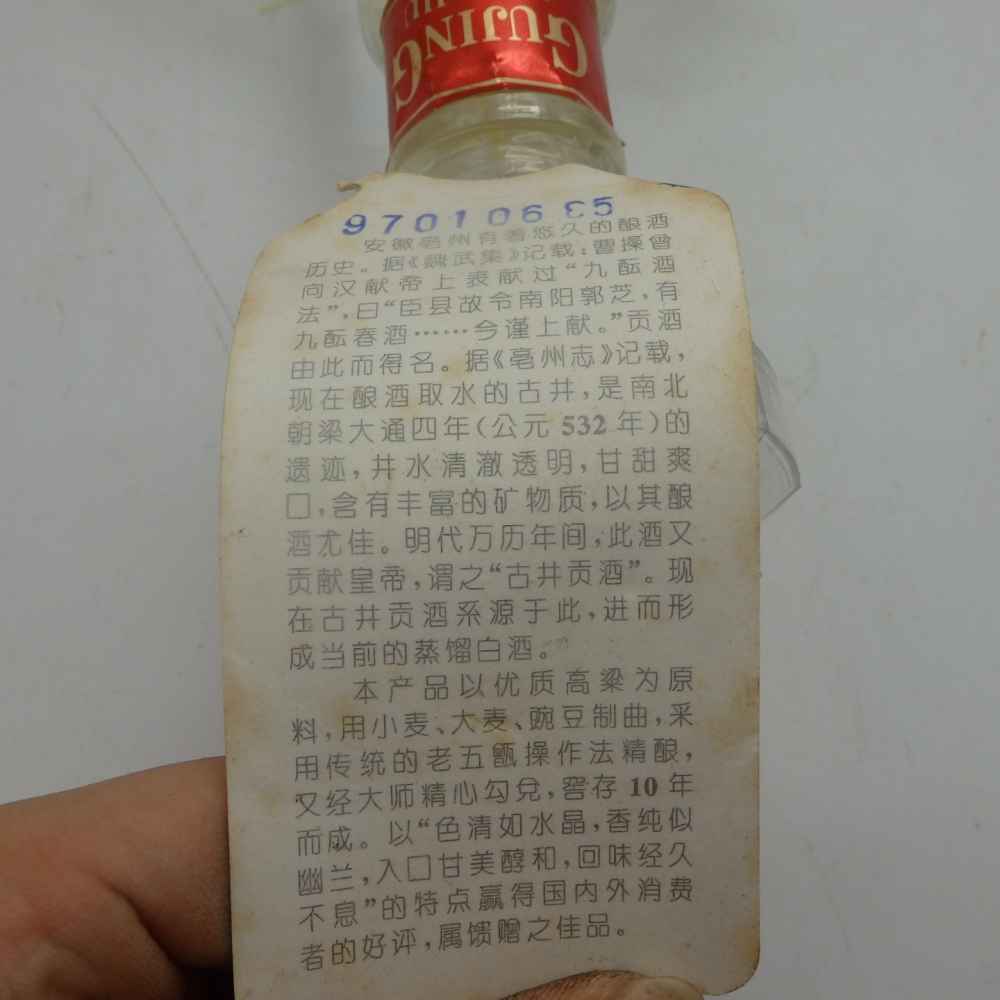 GUJING
970106 E5
安徽亳州有着悠久的酿酒
历史。据《魏武集》记载:曹操曾
向汉献帝上表献过“九酝酒
法”,曰“臣县故令南阳郭芝,有
九酝春酒……今谨上献。”贡酒
由此而得名。据《亳州志》记载,
现在酿酒取水的古井,是南北
朝梁大通四年(公元532年)的
遗迹,井水清澈透明,甘甜爽
口,含有丰富的矿物质,以其酿
酒尤佳。明代万历年间,此酒又
贡献皇帝,谓之“古井贡酒”。现
在古井贡酒系源于此,进而形
成当前的蒸馏白酒。
本产品以优质高粱为原
料,用小麦、大麦、豌豆制曲,采
用传统的老五甑操作法精酿,
又经大师精心勾兑,窖存10年
而成。以“色清如水晶,香纯似
幽兰,入口甘美醇和,回味经久
不息”的特点赢得国内外消费
者的好评,属馈赠之佳品。